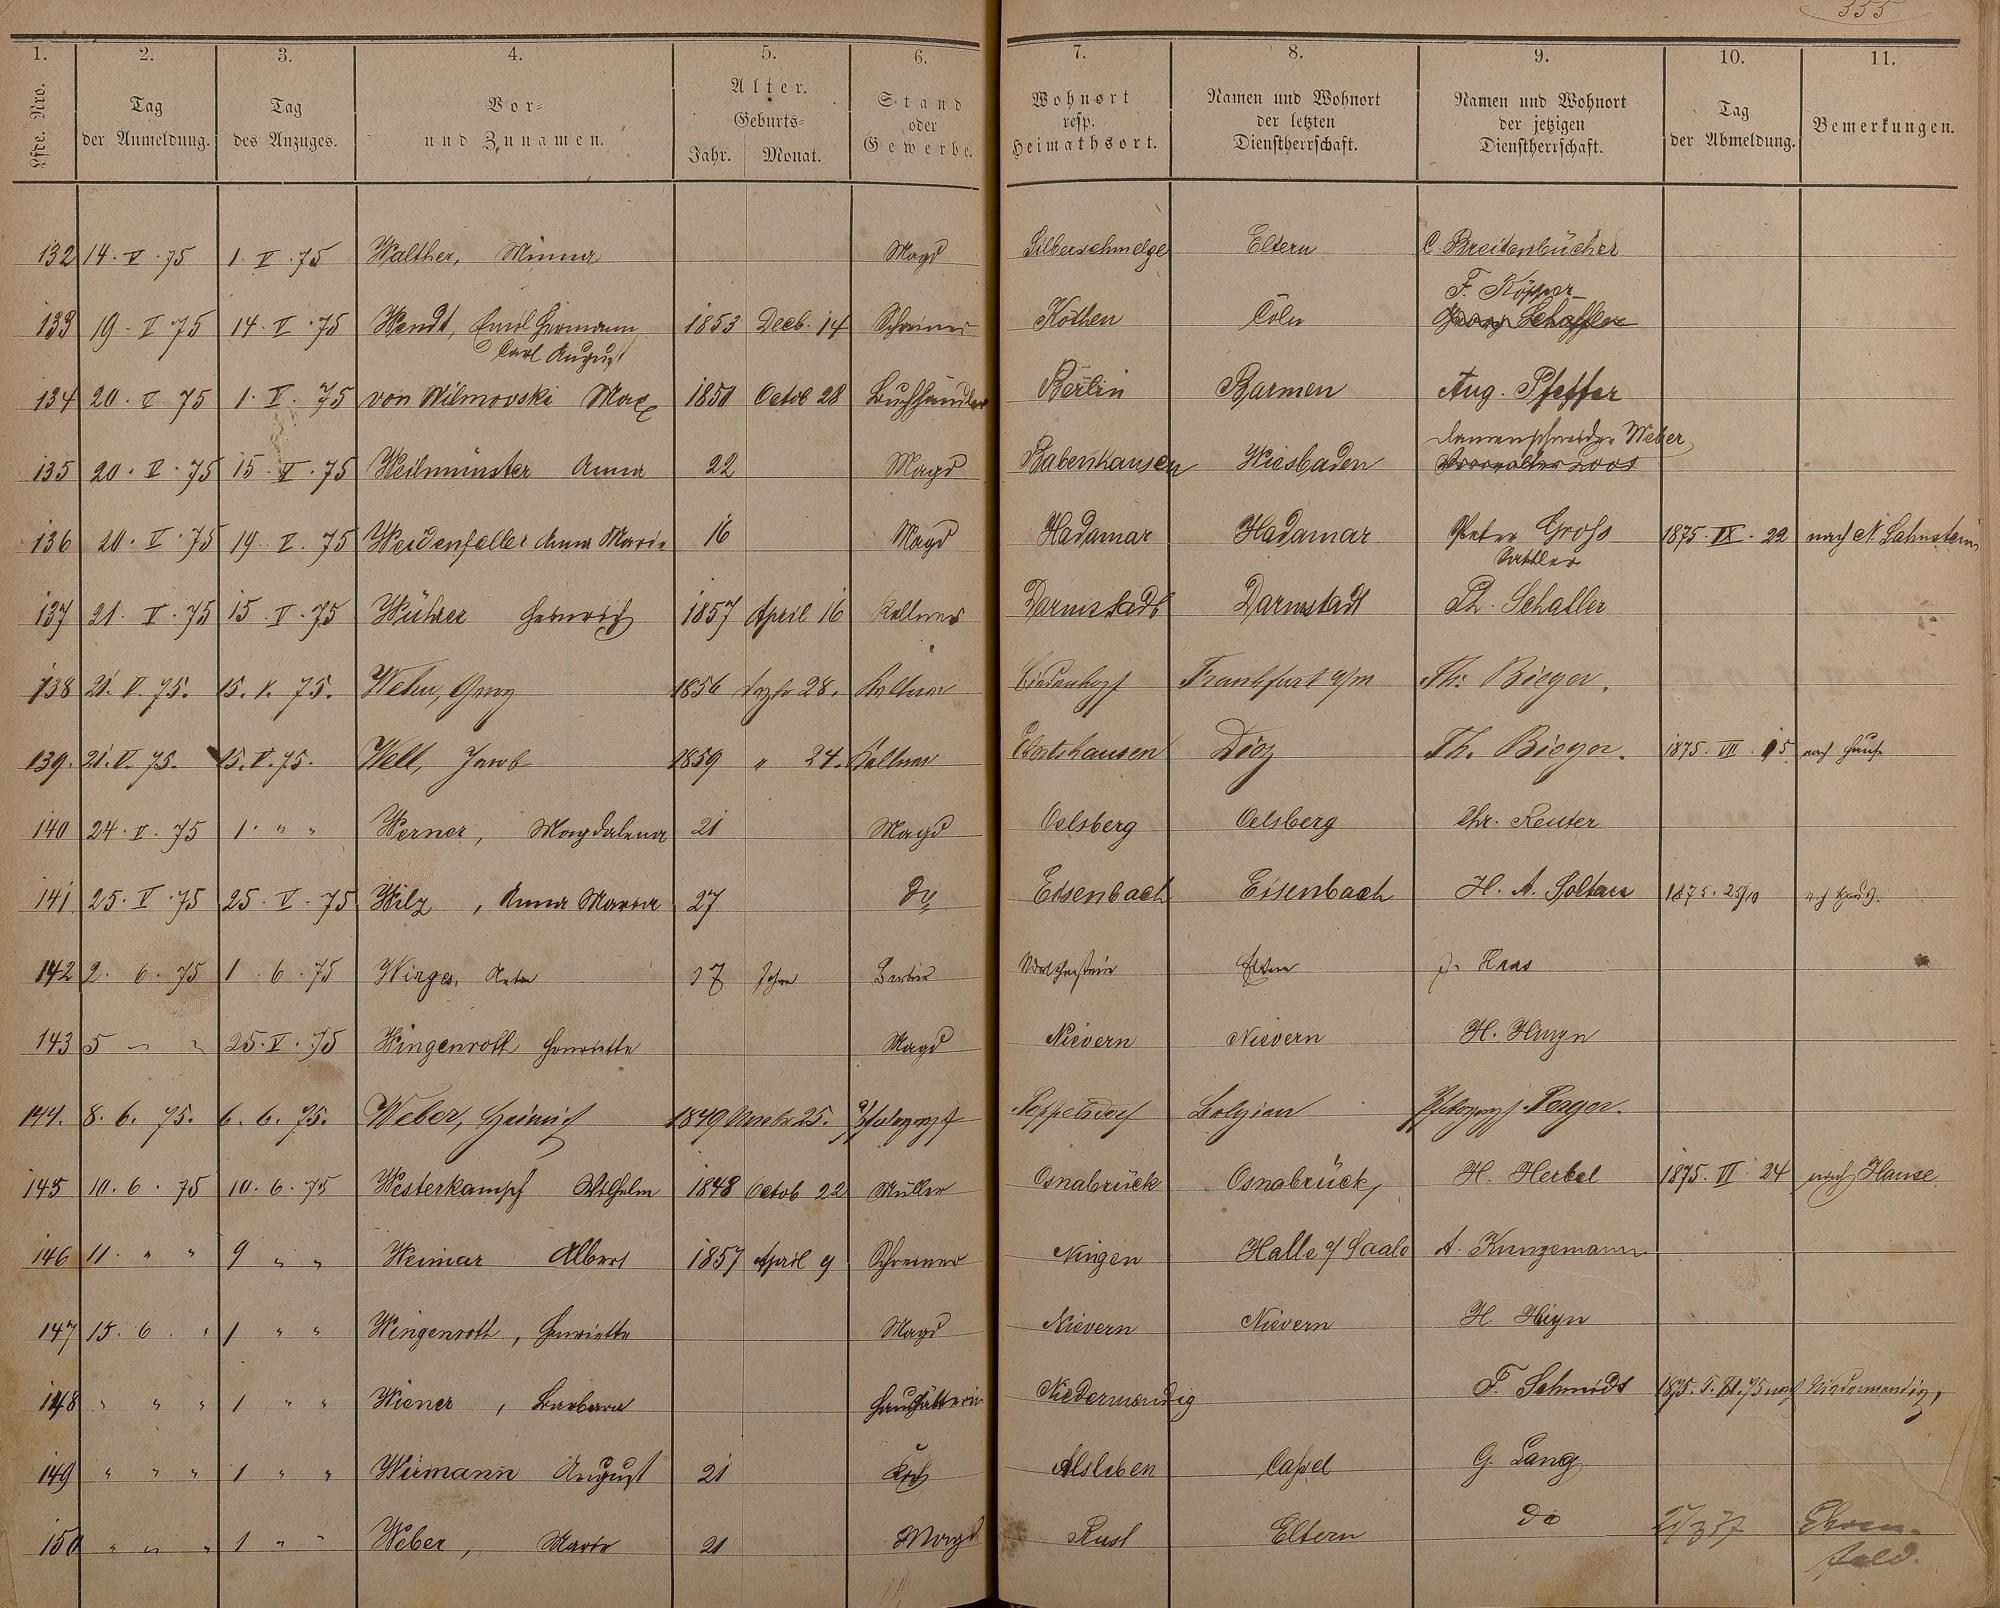 355
1. 2. 3. 4. 5. 6. 7. 8. 9. 10. 11.
Lfde. Nro. Tag der Anmeldung. Tag des Anzuges. Vor- und Zunamen. Alter. Geburts- Jahr. Monat. Stand oder Gewerbe. Wohnort resp. Heimathsort. Namen und Wohnort der letzten Dienstherrschaft. Namen und Wohnort der jetzigen Dienstherrschaft. Tag der Abmeldung. Bemerkungen.
132 14. V. 75 1. V. 75 Walther, Minna Magd Silberschmelze Eltern C. Breitenbücher
F. Köpper
133 19. V 75 14. V. 75 Wendt, Emil Hermann 1853 Decb. 14 Schreiner Köthen Cöln Georg Schaffler
Carl August
134 20. V 75 1. V. 75 von Wilmovski Max 1850 Octob 28 Buchhändler Berlin Barmen Aug. Pfeffer
Damenschneider Weber
135 20. V. 75 15. V. 75 Weilmünster Anna 22 Magd Babenhausen Wiesbaden
136 20. V. 75 19. V. 75 Weidenfeller Anna Marie 16 Magd Hadamar Hadamar Peter Groß 1875. IX. 22 nach N. Lahnstein
Sattler
137 21. V. 75 15. V. 75 Wührer Heinrich 1857 April 16 Kellner Darmstadt Darmstadt Ph. Schaller
138 21. V. 75. 15. V. 75. Wehn, Georg 1856 28. Kellner Biedenkopf Frankfurt a/m Th. Bieger.
139. 21. V. 75. 15. V. 75. Well, Jacob 1859 " 24. Kellner hausen Diez Th. Bieger. 1875. VII. 15 nach Hause
140 24. V. 75 1. " " Werner, Magdalena 21 Magd Oelsberg Oelsberg Chr. Reuter
141 25. V. 75 25. V. 75 Wilz, Anna Maria 27 do Eisenbach Eisenbach H. A. Soltau 1875. 25/10 nch Haus.
142 2. 6. 75 1. 6. 75 Wirges, 17 Jahre Eltern J. Haas
143 5 " " 25. V. 75 Wingenroth Henriette Magd Nievern Nievern H. Heyn
144. 8. 6. 75. 6. 6. 75. Weber, Heinrich 1849 25. Photograph Poppelsdorf Belgien Photograph
145 10. 6. 75 10. 6. 75 Westerkampf Wilhelm 1848 Octob 22 Müller Osnabrück Osnabrück, H. Herbel 1875. VI. 24 nach Hause
146 11. " " 9 " " Weimar Albert 1857 April 9 Schreiner Halle a/ Saale A. Kunzemann
147 15. 6. " 1 " " Wingenroth, Henriette Magd Nievern Nievern H. Heyn
148 " " " 1 " " Wiener, Barbara Haushälterin Niedermendig F. Schmidt 1875. 5. XI. 75 nach Niedermendig,
149 " " " 1 " " Wirmann August 21 Koch Alsleben Cassel G. Lang
150 " " " 1 " " Weber, Marie 21 Magd Rust Eltern do Ehren-
feld.